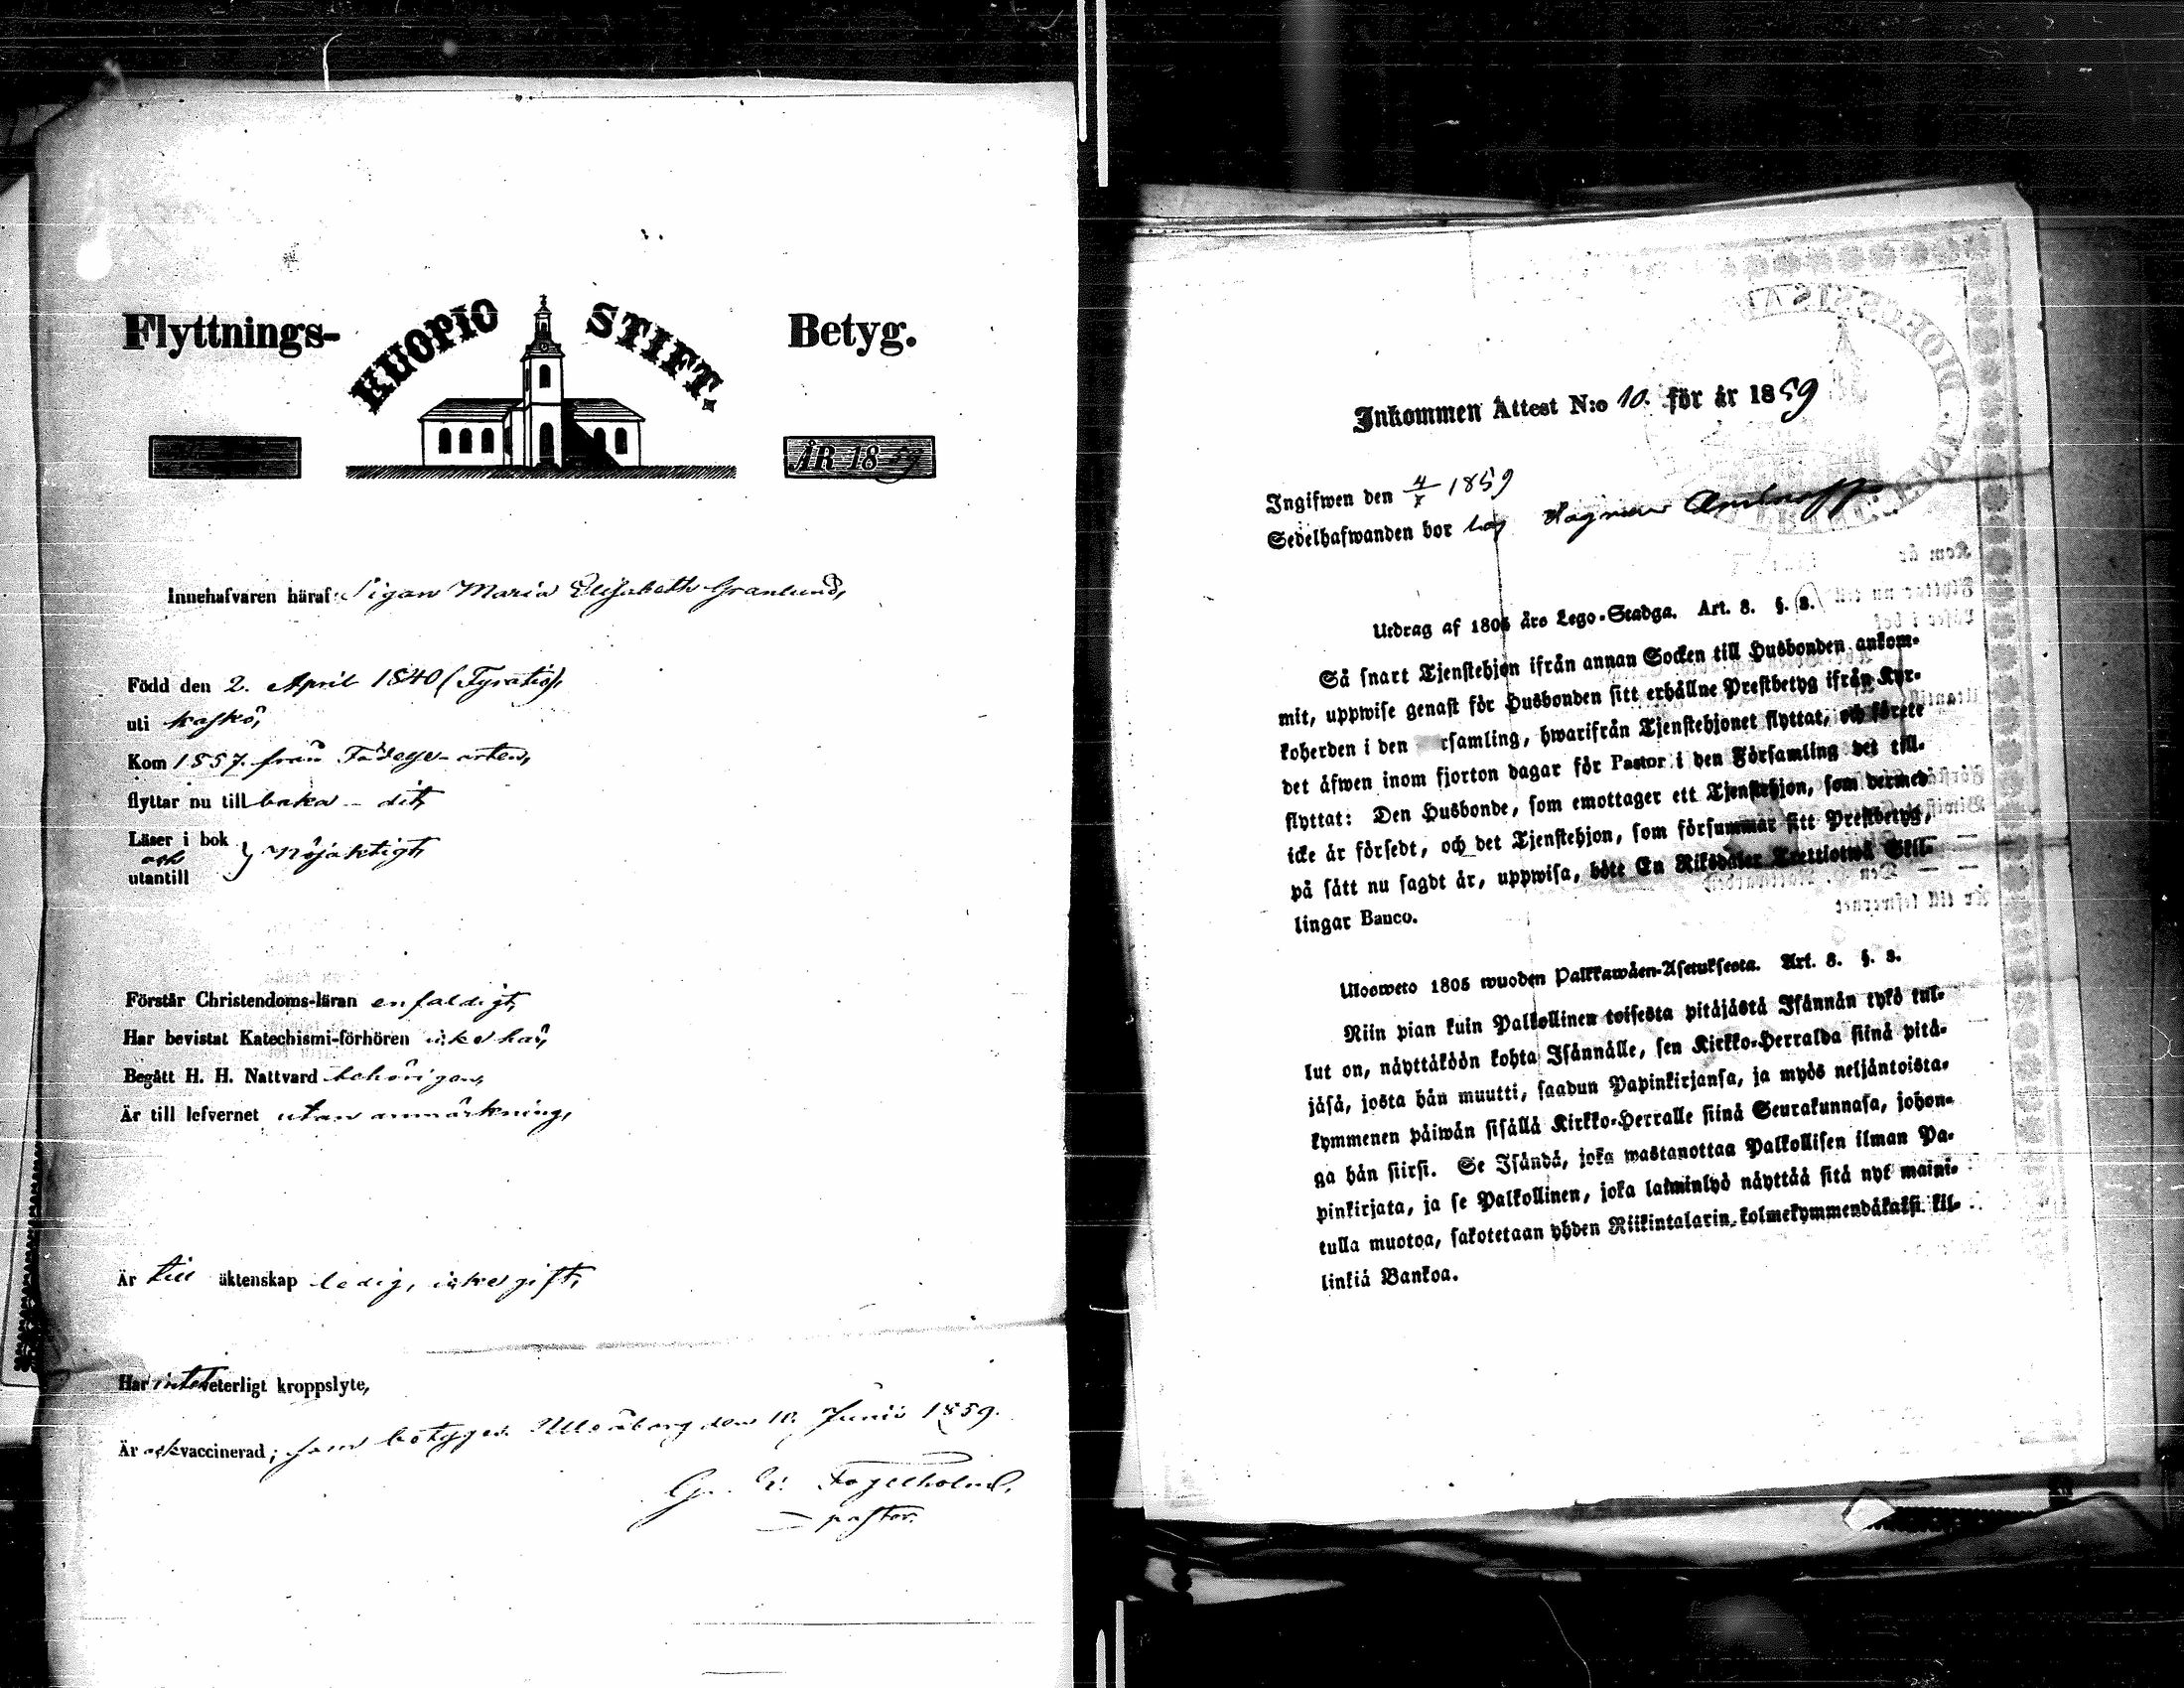 Flyttnings- KUOPIO STIFT. Betyg.
ÅR 1859
Innehafvaren häraf: Pigan Maria Elisabeth Granlund,
Född den 2. April 1840 (Tyrnävä),
uti Kaskö,
Kom 1857. från Födelse-orten,
flyttar nu till baka - dit,
Läser i bok
och } nöjaktigt,
utantill
Förstår Christendoms-läran enfaldigt,
Har bevistat Katechismi-förhören icke här,
Begått H. H. Nattvard behörigen,
Är till lefvernet utan anmärkning,
Är till äktenskap ledig, icke gift,
Har intet veterligt kroppslyte,
Är ock vaccinerad; som betygas. Uleåborg den 10. Junii 1859.
Fogelholm,
pastor.
Inkommen Attest N:o 10. för år 1859
Ingifwen den 4/7 1859
Sedelhafwanden bor hos
Utdrag af 1805 års Lego-Stadga. Art. 8. §. 8.
Så snart Tjenstehjon ifrån annan Socken till Husbonden ankom-
mit, uppwise genast för Husbonden sitt erhållne Prestbetyg ifrån Kyr-
koherden i den rsamling, hwarifrån Tjenstehjonet flyttat, och förete
det äfwen inom fjorton dagar för Pastor i den Församling det till-
flyttat: Den Husbonde, som emottager ett Tjenstehjon, som dermed
icke är försedt, och det Tjenstehjon, som försummar sitt Prestbetyg,
på sätt nu sagdt är, uppwisa, böte En Riksdaler Trettiotwå Skil-
lingar Banco.
Ulosweto 1805 wuoden Palkkawäen-Asetuksesta. Art. 8. §. 8.
Niin pian kuin Palkollinen toisesta pitäjästä Isännän tykö tul-
lut on, näyttäköön kohta Isännälle, sen Kirkko-Herralda siinä pitä-
jäsä, josta hän muutti, saadun Papinkirjansa, ja myös neljäntoista-
kymmenen päiwän sisällä Kirkko-Herralle siinä Seurakunnasa, johon-
ga hän siirsi. Se Isändä, joka wastanottaa Palkollisen ilman Pa-
pinkirjata, ja se Palkollinen, joka laiminlyö näyttää sitä nyt maini-
tulla muotoa, sakotetaan yhden Riikintalarin kolmekymmendäkaksi kil-
linkiä Bankoa.